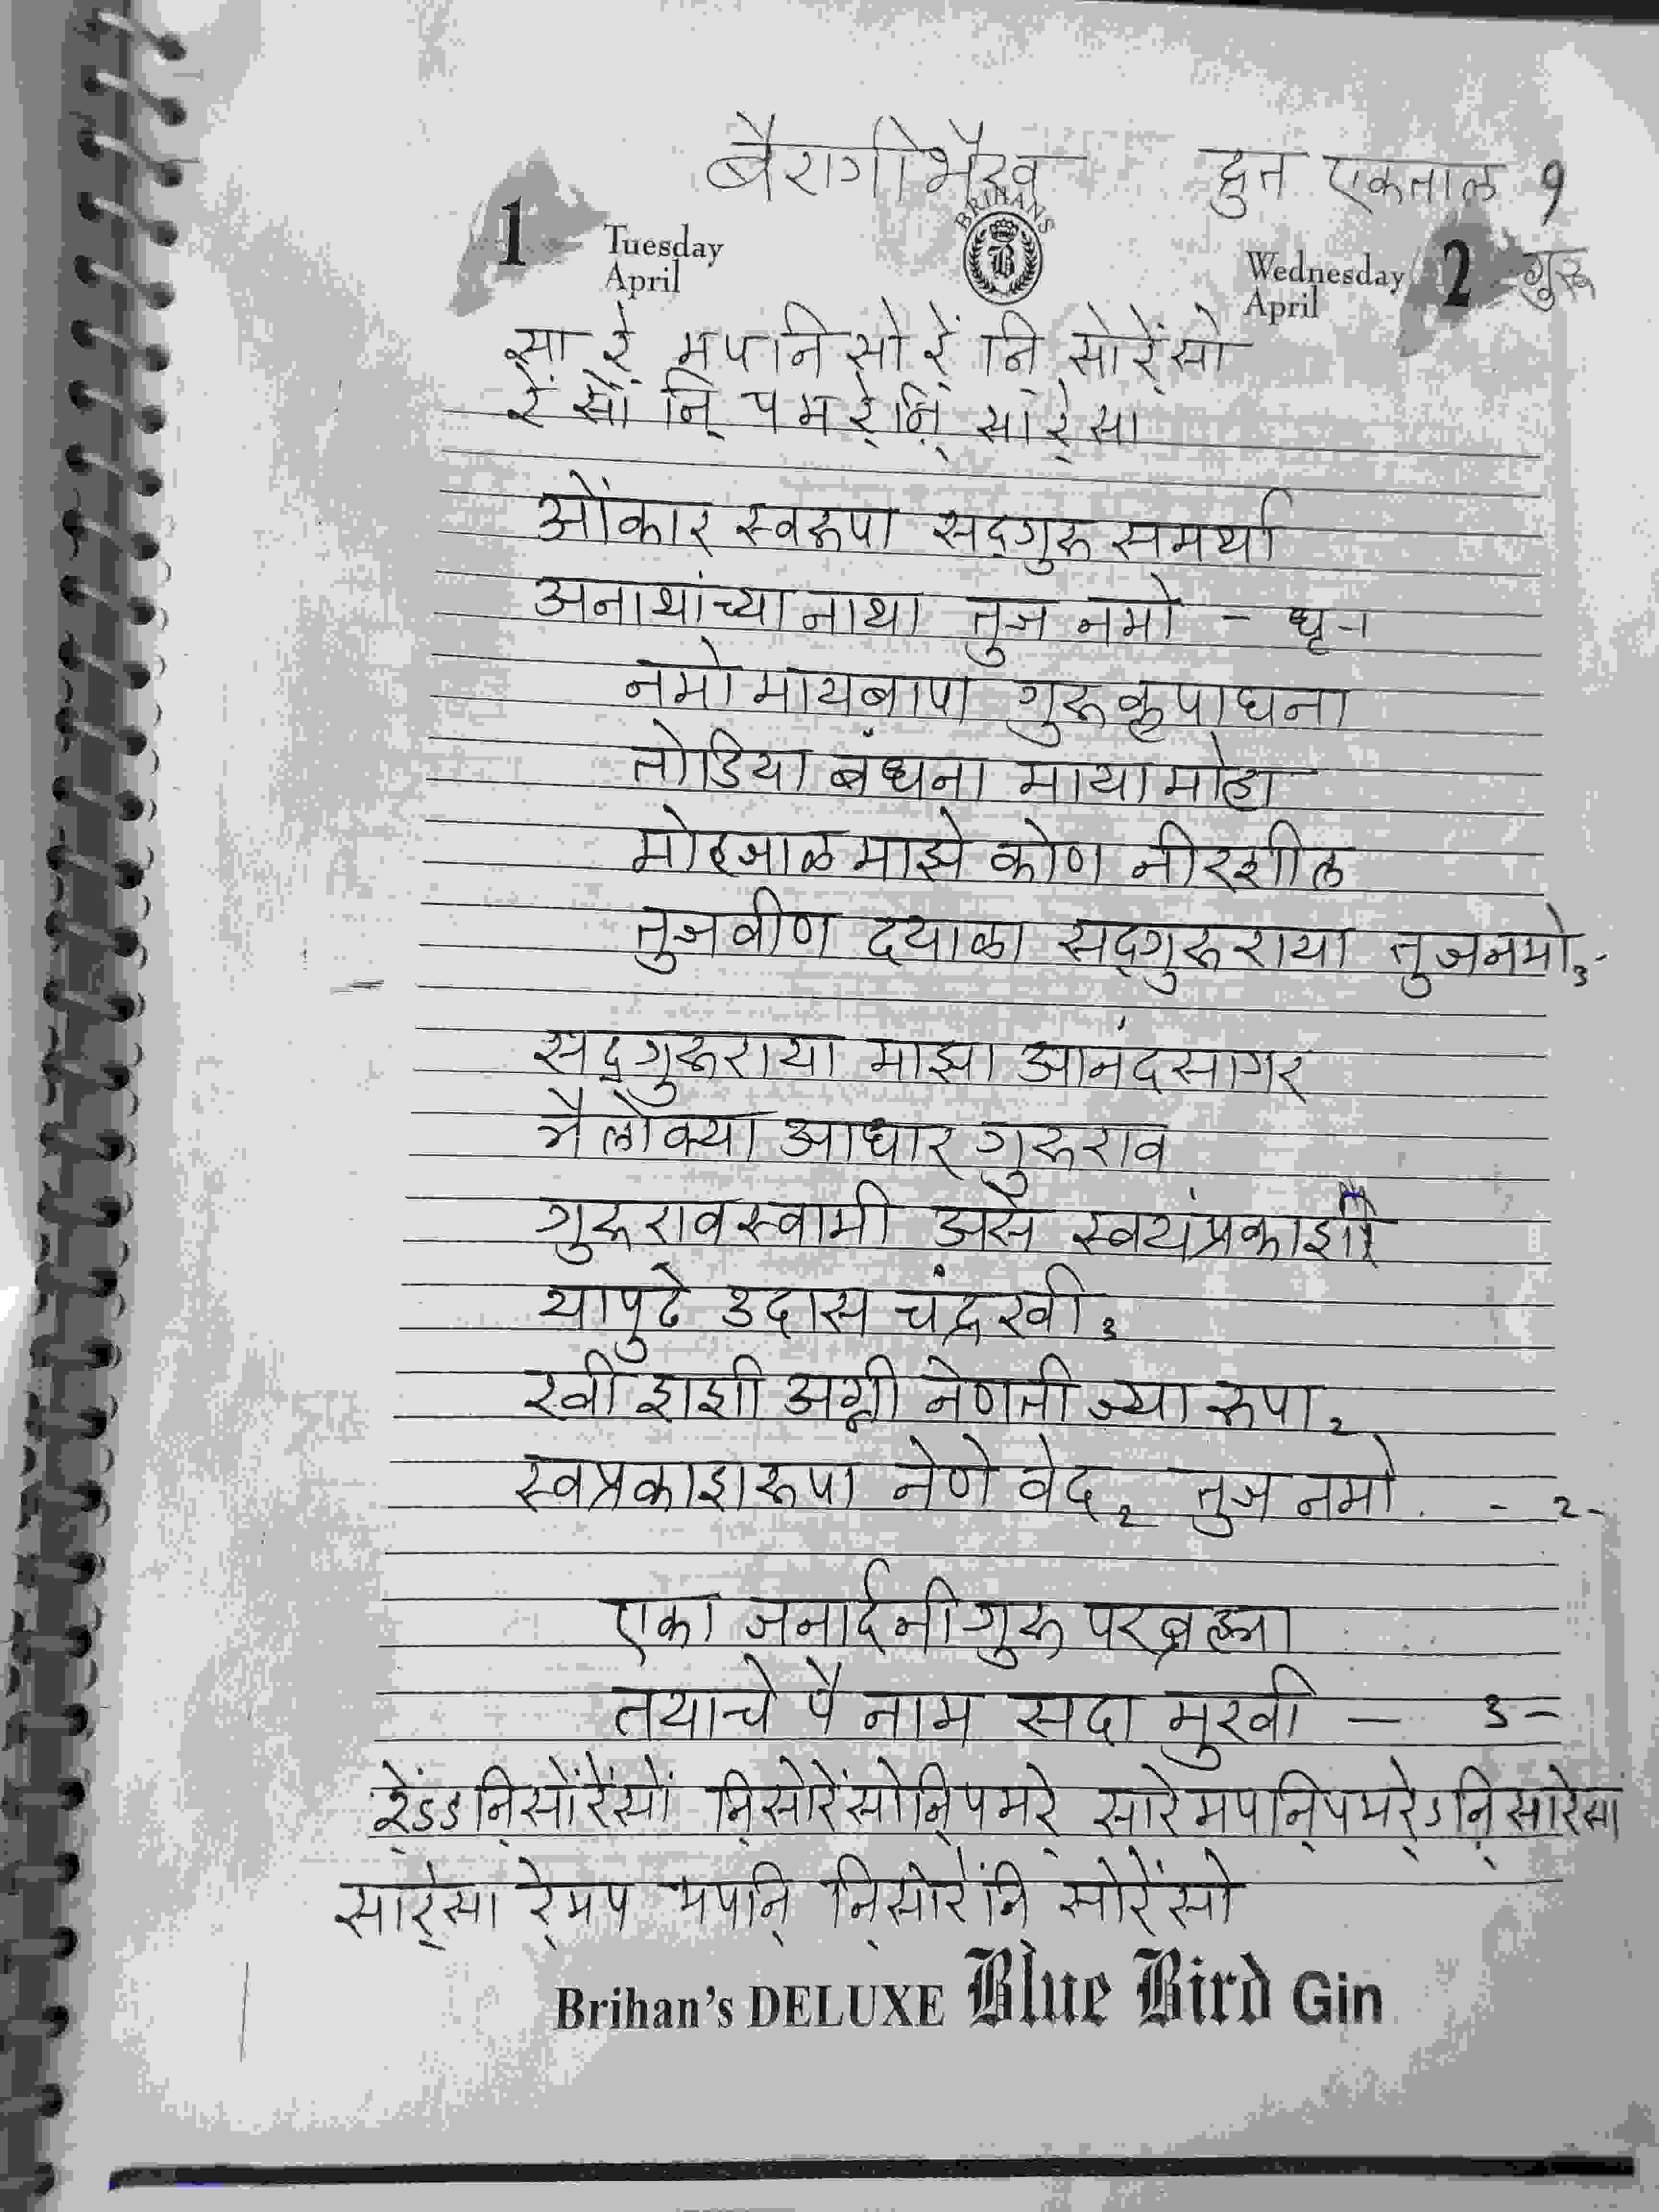 बैरागीभैरव द्रुत एकताल १
BRIHANS
B
1 Tuesday April
Wednesday April 2 गुरू
सा रे॒ मपनिसां रें॒ नि॒ सांरें॒सां
रें सां नि॒ प म रे॒नि॒ सारे॒सा
ओंकार स्वरूपा सद्‌गुरू समर्था
अनाथांच्या नाथा तुज नमो - धृ-१
नमो मायबापा गुरू कृपाघना
तोडिया बंधना माया मोहा
मोहजाळ माझे कोण नीरशील
तुजवीण दयाळा सद्‌गुरू राया तुजनमो३-
सद्‌गुरूराया माझा आनंदसागर
त्रैलोक्या आधार गुरूराव
गुरूरावस्वामी असे स्वयंप्रकाशी
यापुढे उदास चंद्र रवी३
रवी शशी अग्नी नेणती ज्या रूपा२
स्वप्रकाशरूपा नेणे वेद२ तुज नमो - २-
एका जनार्दनी गुरू परब्रह्म
तयाचे पै नाम सदा मुखी — ३-
रें॒ऽऽनि॒सांरेंसां नि॒सांरेंसांनि॒पमरे॒ सारेमपनि॒पमरे॒ऽनि॒सारेसा
सारे॒सा रे॒मप मपनि॒ नि॒सांरेंनि सांरेंसां
Brihan's DELUXE Blue Bird Gin